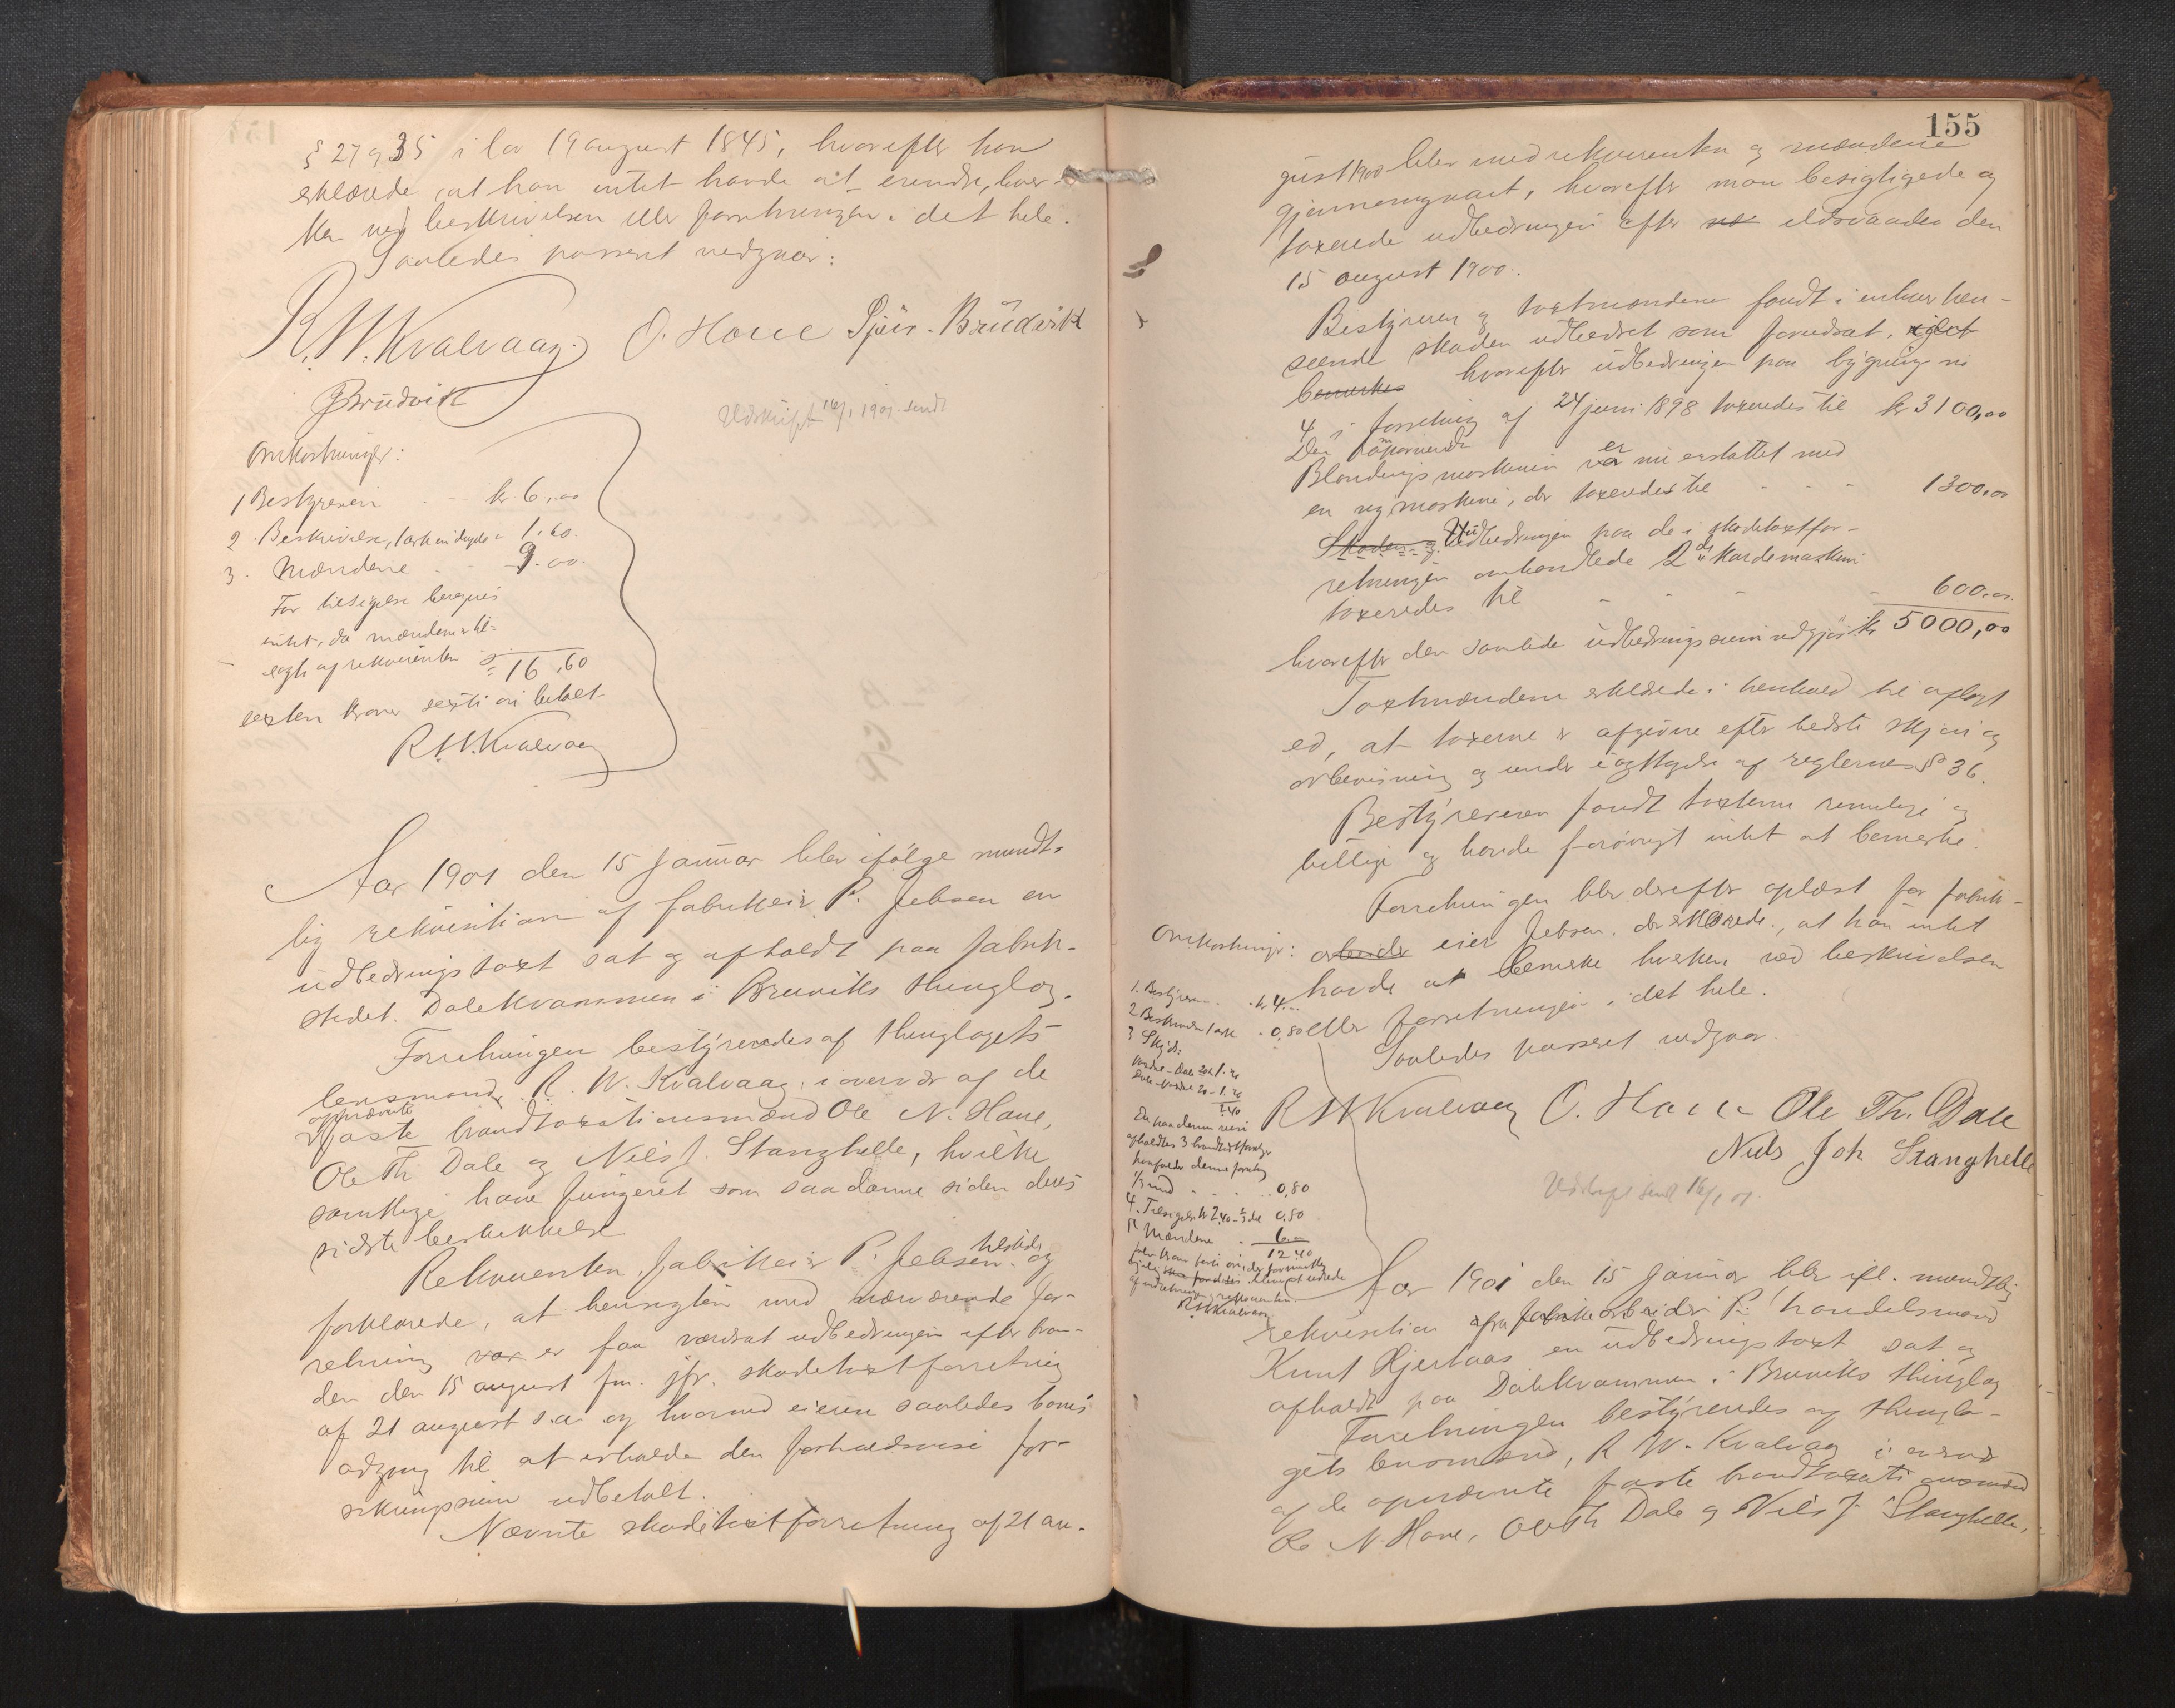 § 27 og 35 i lov 19 august 1845, hvorefter han
erklærede at han intet havde at erindre, hver-
ken ved beskrivelsen eller forretningen i det hele.
Saaledes passeret vedgaar:
R. W. Kvalvaag. O. Hove Sjur. Brudvik
Brudvik
Udskrift 16/1 1901 sendt
Omkostninger:
1 Bestyreren kr 6,00
2. Beskrivelse, 1.60.
3. Mændene 9.00.
For tilsigelse beregnes
intet, da mændene er til-
sagt af rekvirenten
16,60
sexten kroner sexti øre betalt
R. W. Kvalvaag
Aar 1901 den 15 januar blev ifølge mundt-
lig rekvisition af fabrikeier P. Jebsen en
udbedringstaxt sat og afholdt paa fabrik-
stedet Dalekvammen i Bruviks thinglag.
Forretningen bestyredes af thinglagets
lensmand, R. W. Kvalvaag, i overvær af de
opnævnte
faste brandtaxationsmænd Ole N. Hove,
Ole Th Dale og Nils J. Stanghelle, hvilke
samtlige have fungeret som saadanne siden deres
sidste beskikkelse
Rekvirenten, fabrikeier P. Jebsen tilstede og
forklarede, at hensigten med nærværende for-
retning var er faa værdsat udbedringen efter bran-
den den 15 august f.a. jfr. skadetaxtforretning
af 21 august s.a. og hvorved eieren saaledes
adgang til at erholde den forholdsvise for-
sikringssum udbetalt.
Nævnte skadetaxtforretning af 21 au-
155
gust 1900 blev med rekvirenten og mændene
gjennemgaaet, hvorefter man besigtigede og
taxerede udbedringen efter ildsvaaden den
15 august 1900.
Bestyreren og taxtmændene fandt i enhver hen-
seende skaden udbedret som forudsat, idet
bemerkes hvorefter udbedringen paa bygning no
4 i forretning af 24 juni 1898 taxeredes til kr 3100,00
Den
Blandingsmaskinen var er nu erstattet med
en ny maskine, der taxeredes til 1300,00
Skaden og Udbedringen paa de i skadetaxtfor-
retningen omhandlede 2de kardemaskiner
taxeredes til 600,00.
hvorefter den samlede udbedringssum udgjør kr 5000,00
Taxtmændene erklærede i henhold til aflagt
ed, at taxterne er afgivne efter bedste skjøn og
overbevisning og under iagttagelse af reglernes § 36.
Bestyreren fandt taxterne rimelige og
billige og havde forøvrigt intet at bemerke.
Forretningen blev derefter oplæst for fabrik-
arbeider eier Jebsen, der erklærede, at han intet
havde at bemerke hverken ved beskrivelsen
eller forretningen i det hele.
Saaledes passeret vedgaar.
R W Kvalvaag O. Hove Ole Th. Dale
Nils Joh Stanghelle
Udskrift sendt 16/1 01.
Omkostninger:
1. Bestyreren kr 4.
2 Beskrivelse 1 ark 0,80
3 Skyds:
Da paa denne reise
afholdtes 3 brandtaxtforretn.
henfalder denne forretning
1/3 med 0,80
4. Tilsigelse kr 2,40 1/3 del 0,80
Mændene 6.00
12.40
R W Kvalvaag
Aar 1901 den 15 januar blev ifl. mundtlig
rekvisition fra fabrikarbeider P. handelsmand
Knut Hjertaas en udbedringstaxt sat og
afholdt paa Dalekvammen i Bruviks thinglag
Forretningen bestyredes af thingla-
gets lensmand, R W. Kvalvaag i overvær
af de opnævnte faste brandtaxationsmænd
Ole N. Hove, Ole Th Dale og Nils J. Stanghelle,